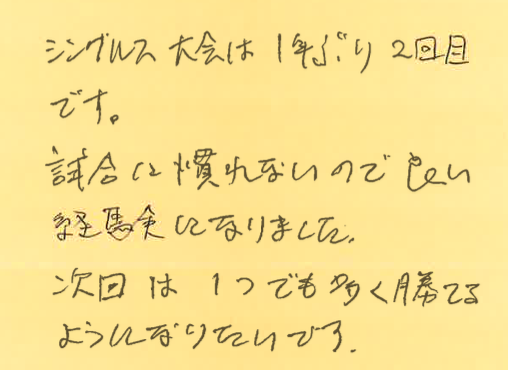 シングルス大会は1年ぶり2回目
です。
試合に慣れないので良い
経験になりました。
次回は1つでも多く勝てる
ようになりたいです.